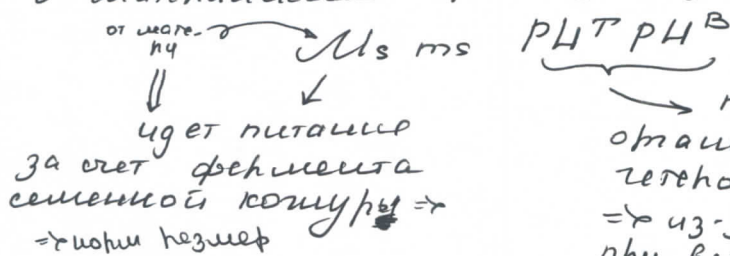 от мате-
ри
Ms ms
идет питание
за счет фермента
семенной кожуры =>
=> норм размер
РЦᵀ РЦᴮ
=> из-